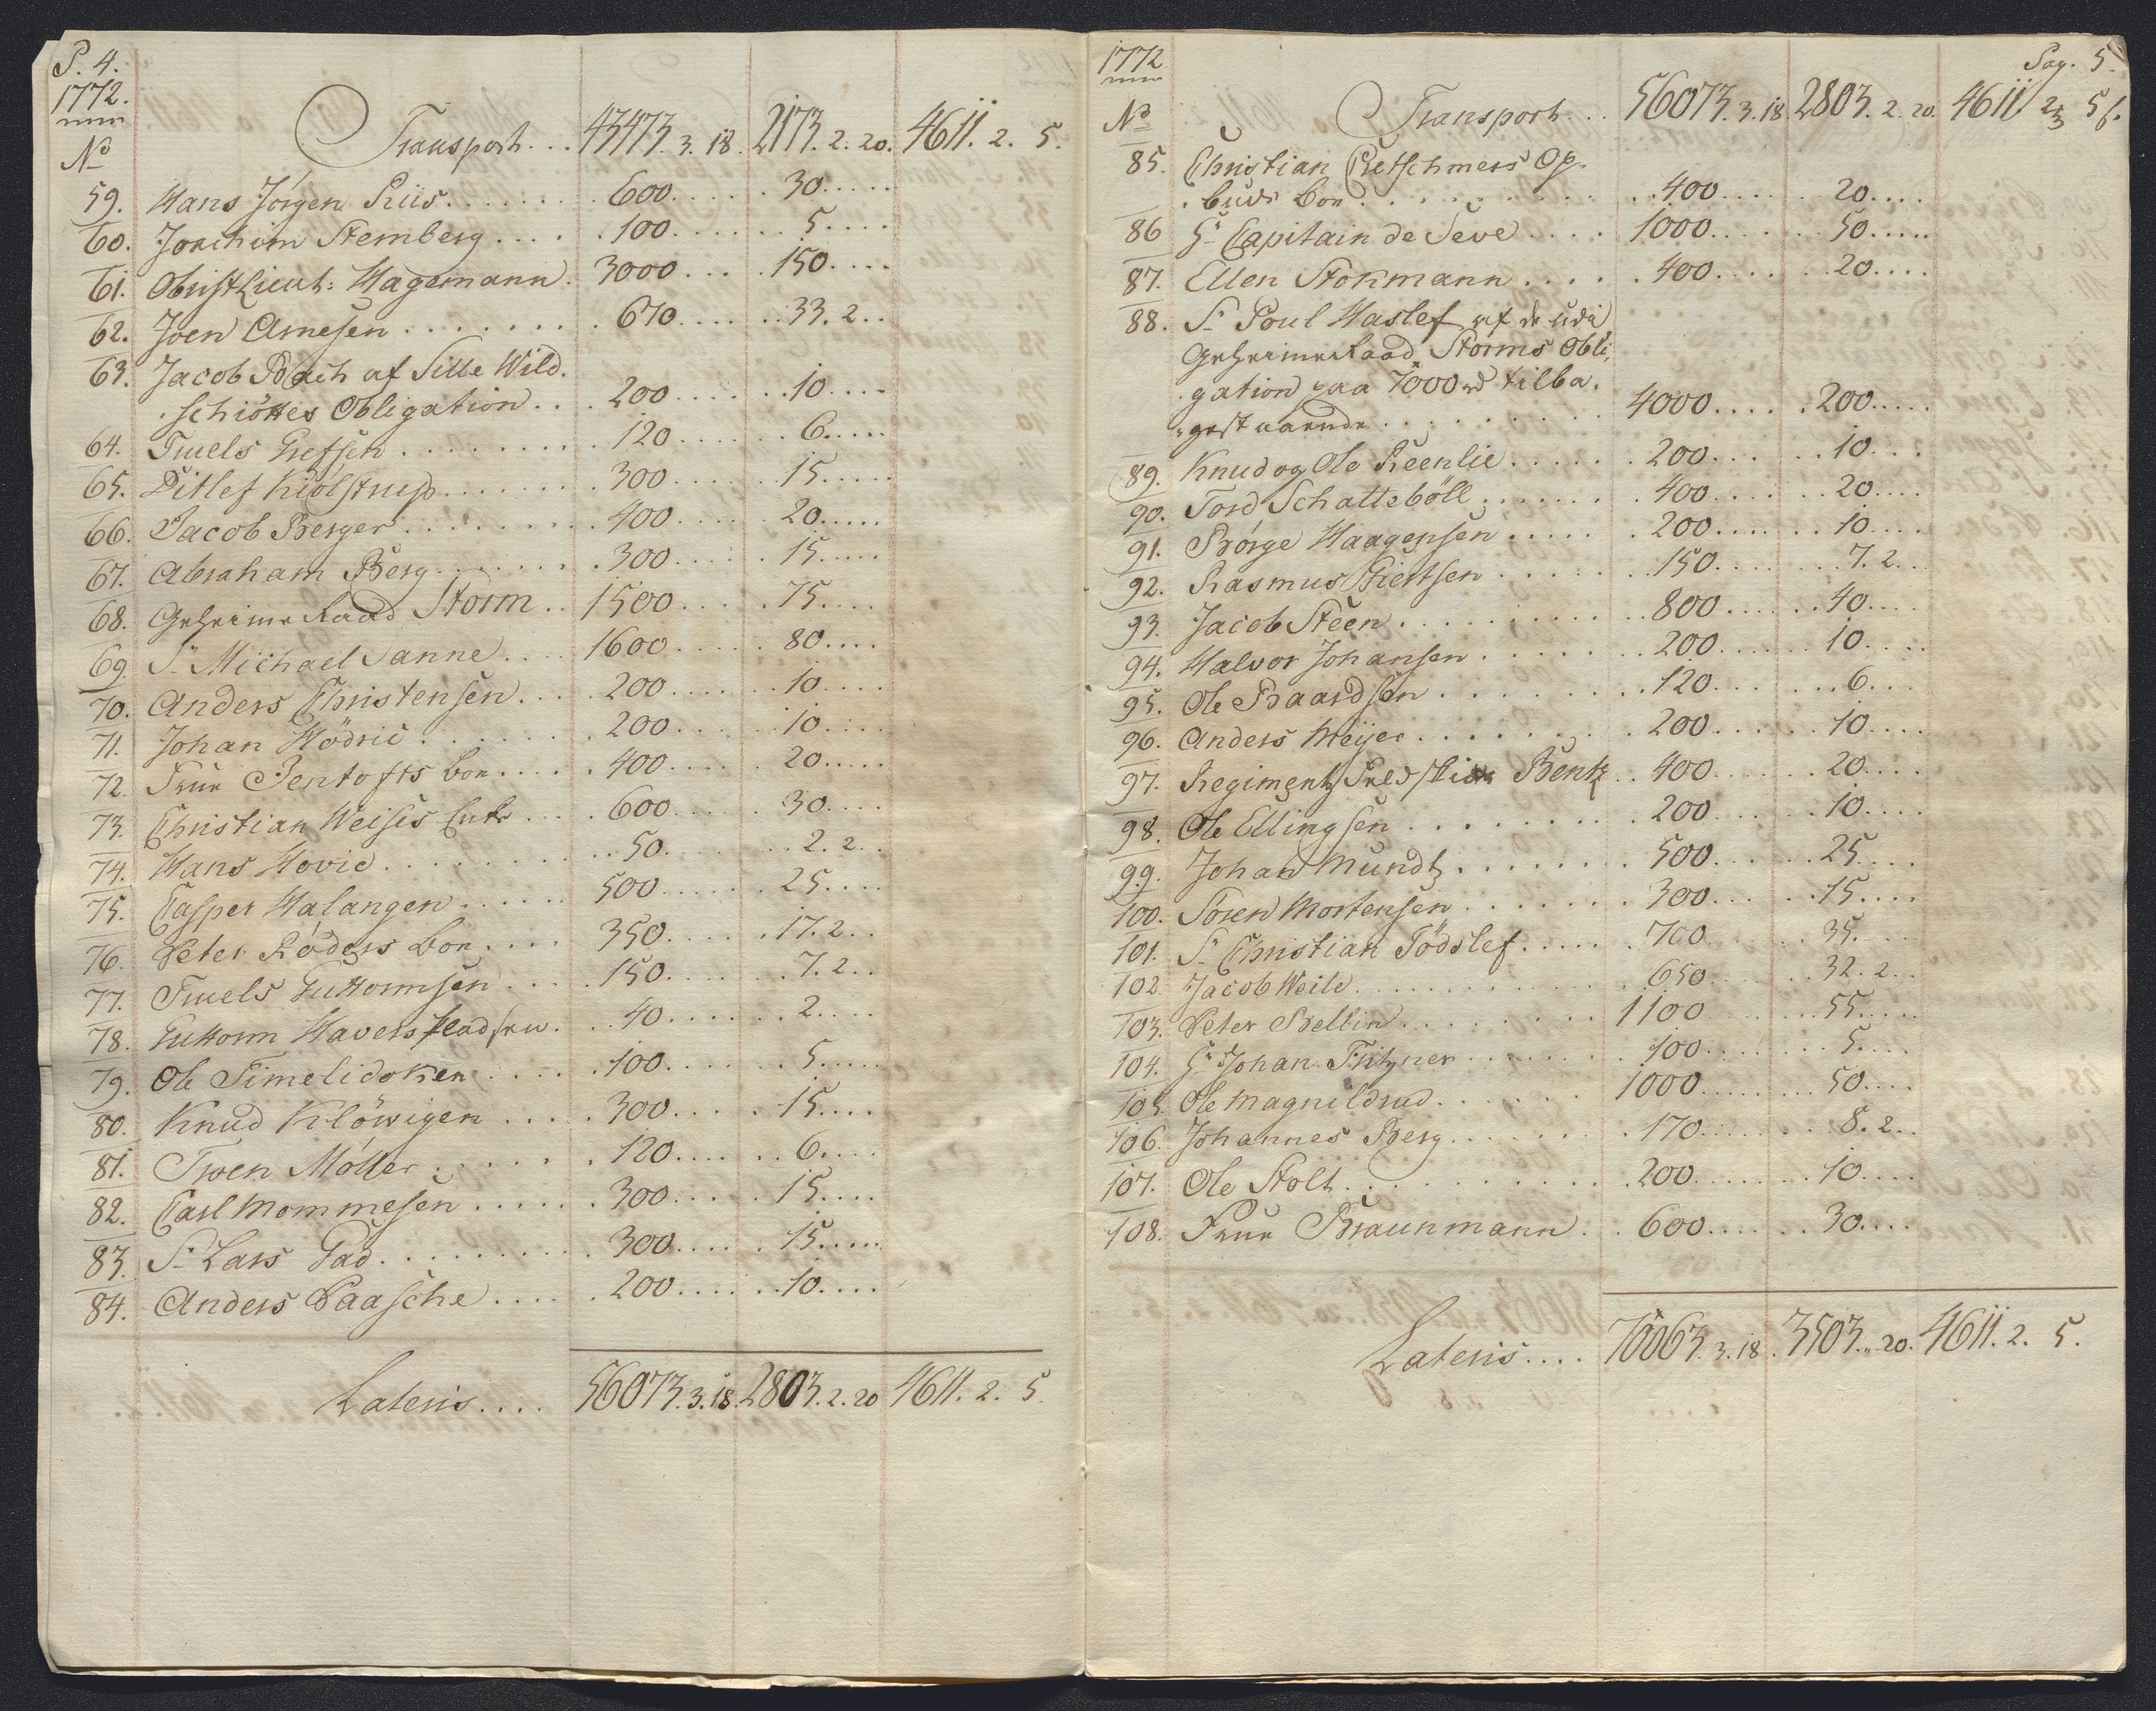 P. 4.
1772.
No
Transport... 43473. 3. 18. 2173. 2. 20. 4611. 2. 5.
59. Hans Jörgen Riis....... 600..... 30.....
60. Joachim Stemberg.... 100....... 5....
61. ObristLieut: Hagemann. 3000.... 150....
62. Joen Arnesen........ 670..... 33. 2..
63. Jacob Poach af Sille Wild.
schiöttes Obligation... 200...... 10....
64. Truels Grefsen......... 120...... 6.....
65. Ditlef Kiölstrup....... 300...... 15.....
66. Jacob Berger......... 400..... 20.....
67. Abraham Berg....... 300...... 15.....
68. Geheime Raad Storm.. 1500..... 75....
69. Sr. Michael Sanne.... 1600...... 80....
70. Anders Christensen... 200....... 10....
71. Johan Hödrie....... 200...... 10....
72. Frue Jentofts boe..... 400...... 20.....
73. Christian Weises Enke.... 600..... 30....
74. Hans Hovie.......... 50....... 2. 2..
75. Casper Halangen...... 500...... 25....
76. Peter Röders boe.... 350...... 17. 2..
77. Truels Guttormsen.... 150....... 7. 2..
78. Guttorm Haverstadsru... 40...... 2....
79. Ole Timelidoken...... 100....... 5.....
80. Knud Klöwigen..... 300..... 15....
81. Swen Möller....... 120..... 6....
82. Carl Mommesen...... 300..... 15....
83. Sr. Lars Gad......... 300.... 15.....
84. Anders Paasche..... 200...... 10....
Lateris.... 56073. 3. 18. 2803. 2. 20 4611. 2. 5.
1772
Pag. 5.
No
Transport... 56073. 3. 18 2803. 2. 20. 4611 2 5
85. Christian Pletschmers Op-
buds boe.......... 400..... 20....
86 Hr Capitain de Seve.... 1000...... 50.....
87. Ellen Stokmann..... 400...... 20....
88. Sr. Poul Haslef af de udi
Geheime Raad Storms Obli,
gation paa 7000 rd tilba-
gestaaende........ 4000..... 200.....
89. Knud og Ole Reenlie...... 200..... 10...
90. Tord Schattebøll....... 400...... 20....
91. Börge Haagensen...... 200...... 10....
92. Rasmus Giertsen...... 150....... 7. 2..
93. Jacob Steen.......... 800...... 40....
94. Halvor Johansen....... 200...... 10....
95. Ole Baardsen......... 120....... 6...
96. Anders Meijer........ 200...... 10....
97. Regiments Feldskier Bentz.. 400...... 20....
98. Ole Ellingsen......... 200...... 10....
99. Johan Mundt........ 500...... 25....
100. Sören Mortensen....... 300...... 15....
101. Sr. Christian Tödslef..... 700...... 35....
102 Jacob Weile........... 650...... 32. 2..
103. Peter Bellin........ 1100....... 55.....
104. Hr Johan Fritzner....... 100....... 5....
105. Ole Magnildrud....... 1000....... 50....
106. Johannes Berg....... 170....... 8. 2..
107. Ole Stolt........... 200....... 10....
108. Frue Braunmann... 600...... 30....
Lateris.... 70063. 3. 18. 3503. „ 20. 4611. 2. 5.